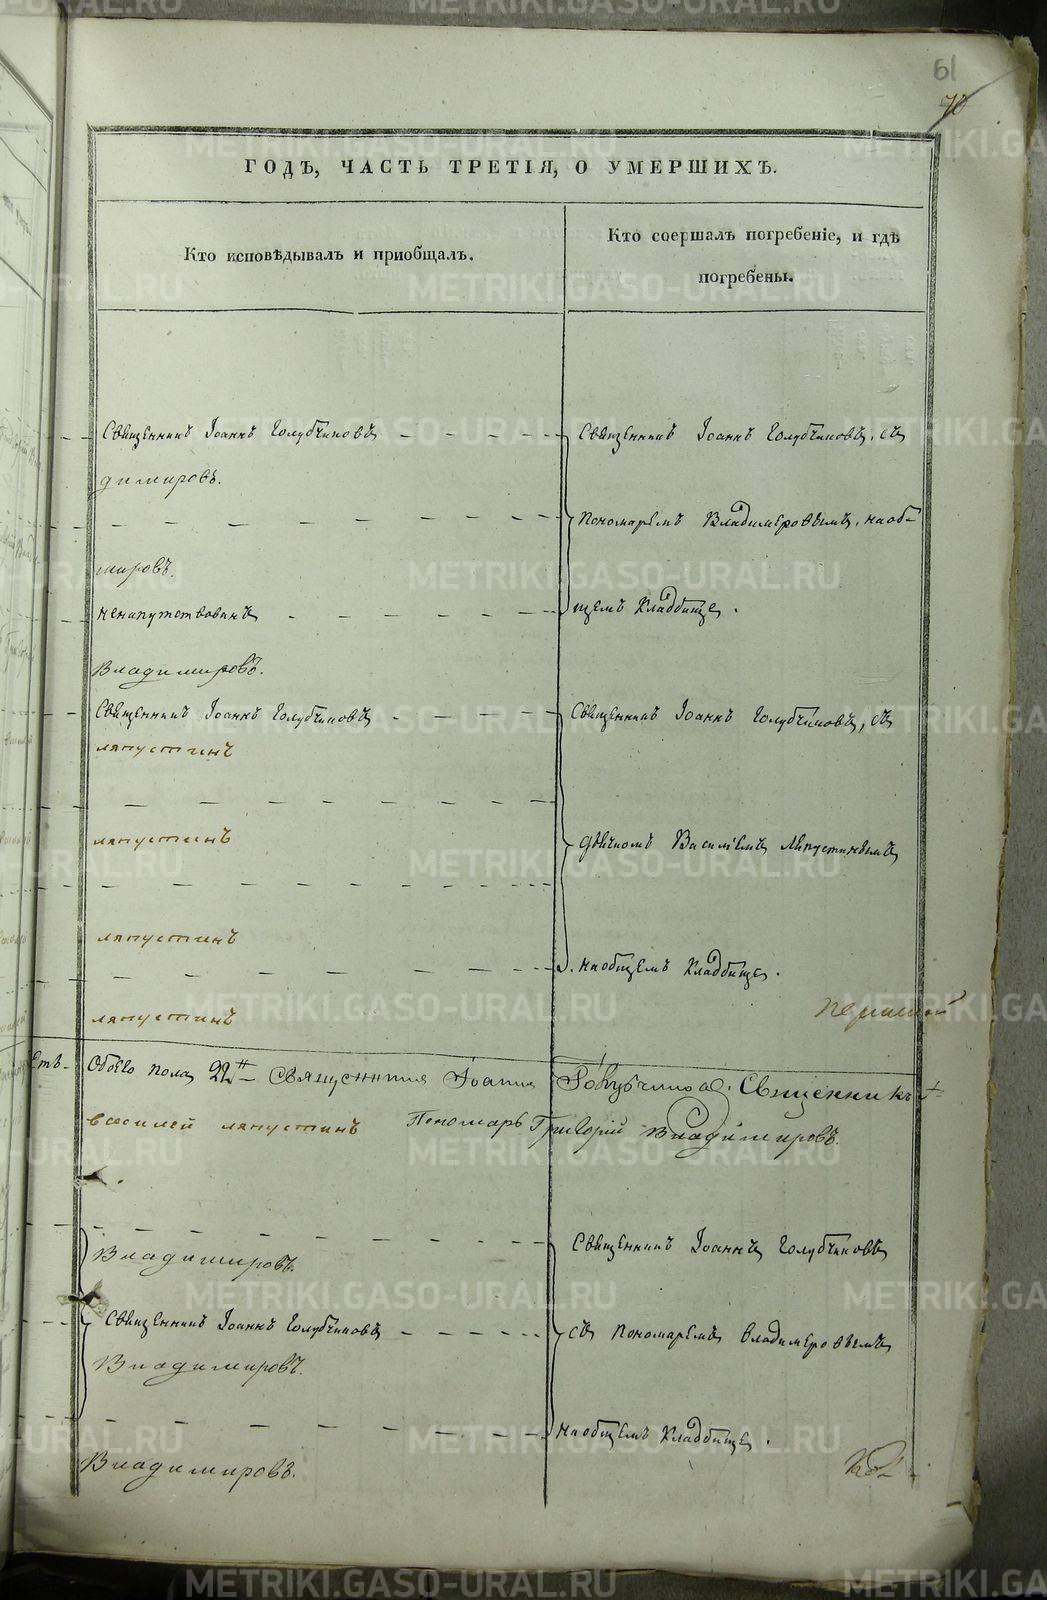 61
70
ГОДЪ, ЧАСТЬ ТРЕТІЯ, О УМЕРШИХЪ.
Кто исповѣдывалъ и приобщалъ.
Кто соершалъ погребеніе, и гдѣ
погребены.
Священникъ Іоаннъ Голубчиковъ
Священникъ Іоаннъ Голубчиковъ, съ
димировъ.
пономаремъ Владимеровымъ, на об-
мировъ.
ненапутствованъ
щемъ кладбище.
Владимировъ.
Священникъ Іоаннъ Голубчиковъ
Священникъ Іоаннъ Голубчиковъ, съ
ляпустинъ
ляпустинъ
дьячкомъ Васильемъ Ляпустинымъ
ляпустинъ
на общемъ кладбище.
ляпустинъ
етъ
Обоего пола 22
Іоаннъ
Священникъ
василей ляпустинъ
Пономарь Григорій Владимировъ.
Священникъ Іоаннъ Голубчиковъ
Владимировъ.
Священникъ Іоаннъ Голубчиковъ
съ пономаремъ Владимеровымъ
Владимировъ.
на общемъ кладбище.
Владимировъ.
METRIKI.GASO-URAL.RU